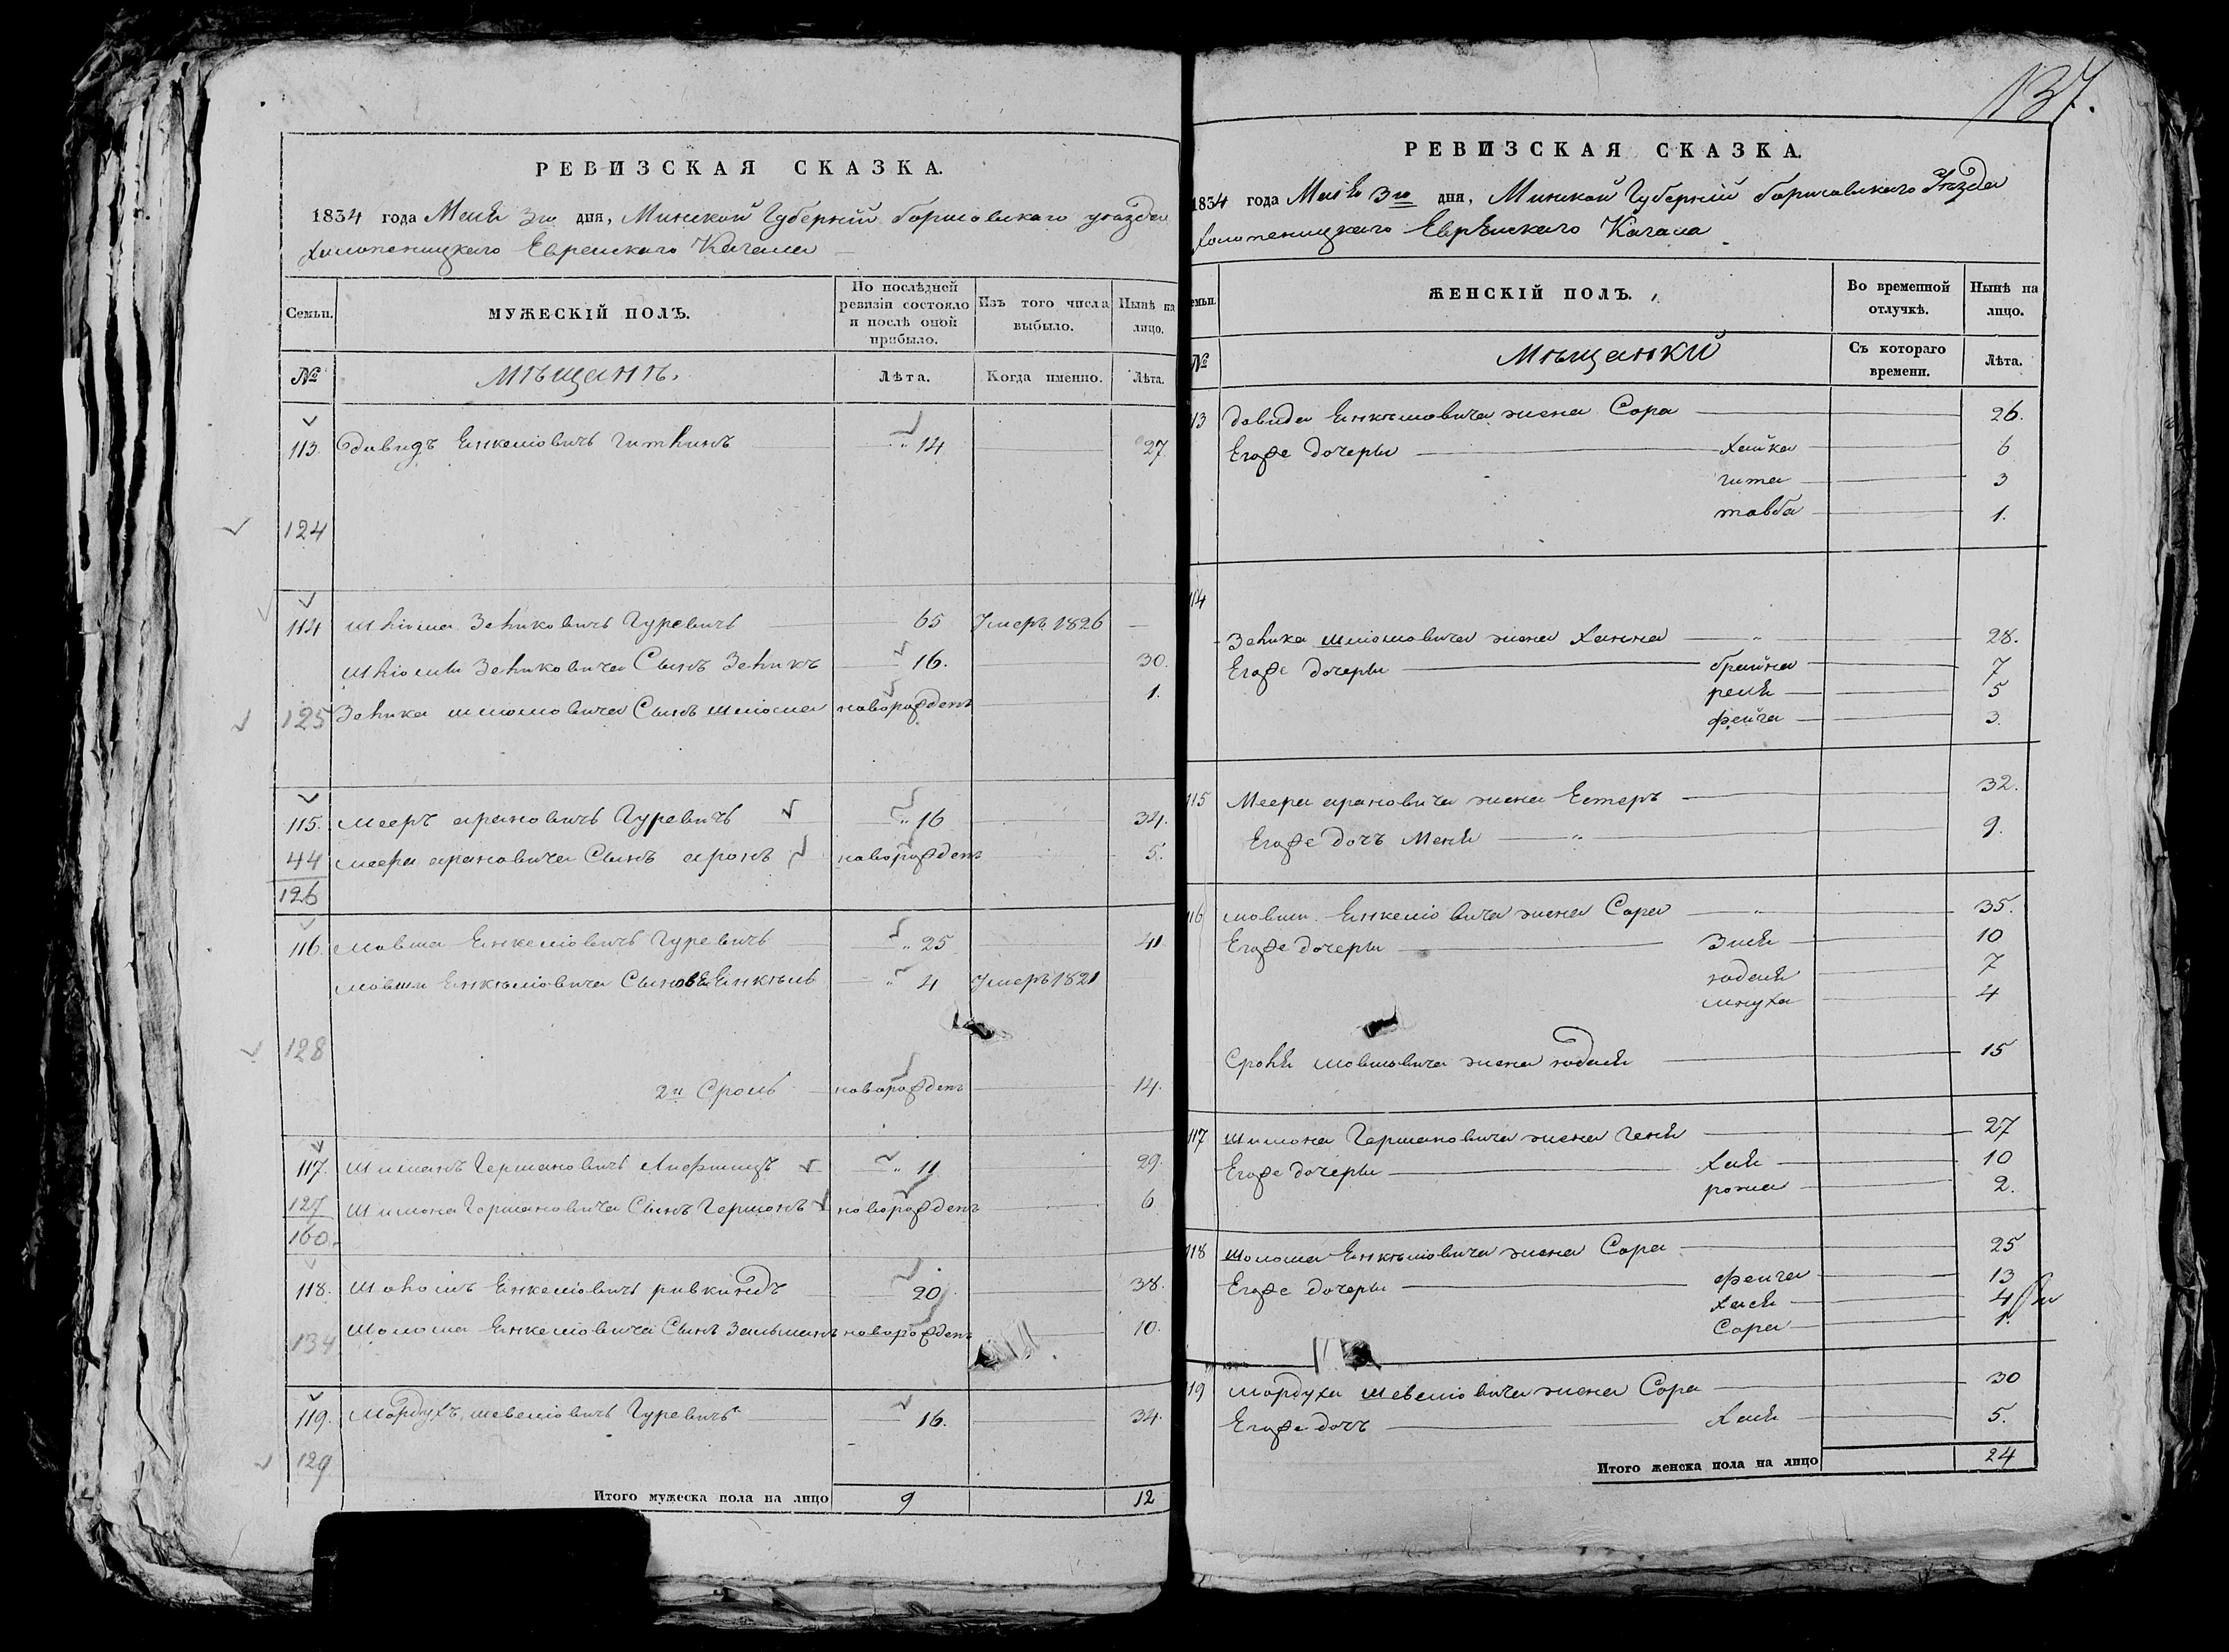 137.
РЕВИЗСКАЯ СКАЗКА.
1834 года Мая 3го дня, Минской Губерніи борисовскаго уѣзда
Холопеницкаго Еврейскаго Кагала
Семьи.
МУЖЕСКІЙ ПОЛЪ.
По послѣдней ревизіи состояло и послѣ оной прибыло.
Изъ того числа выбыло.
Нынѣ на лицо.
№
Мѣщанъ.
Лѣта.
Когда именно.
Лѣта.
113. Давидъ Енкелiовичъ Гиткинъ 14 27
124
114 Шліома Зеликовичъ Гуревичъ 65 Умеръ 1826 —
Шліомы Зеликовича Сынъ Зеликъ 16. 30.
125 Зелика шліомовича Сынъ шліома новорожденъ 1.
115. Мееръ ароновичъ Гуревичъ 16 34.
44 меера ароновича Сынъ аронъ новорожденъ 5.
126
116. мовша Енкеліовичъ Гуревичъ 25 41
мовши Енкѣліовича Сыновья Енкѣль 4 Умеръ 1821
128
2й Сроль новорожденъ 14.
117. Шиманъ Германовичъ Лифшицъ 11 29.
127 Шимона Германовича Сынъ Германъ новорожденъ 6
160.
118. Шоломъ Енкеліовичъ ривкиндъ 20. 38.
134 Шолома Енкеліовича Сынъ Зальманъ новорожденъ 10.
119. Мордухъ шевеліовичъ Гуревичъ 16. 34.
129
Итого мужеска пола на лицо 9 12
РЕВИЗСКАЯ СКАЗКА.
1834 года Мая 3го дня, Минской Губерніи борисовскаго Уѣзда
Холопеницкаго Еврѣйскаго Кагала
емьи.
ЖЕНСКІЙ ПОЛЪ.
Во временной отлучкѣ.
Нынѣ на лицо.
№
Мѣщанки
Съ котораго времени.
Лѣта.
13 Давида Енкѣліовича жена Сора 26.
Егоже дочеры Хайка 6
гита 3
товба 1.
114
Зелика шліомовича жена Ханна 28.
Егоже дочеры брайна 7
рейя 5
фейга 3.
115 Меера ароновича жена Естеръ 32.
Егоже дочъ Меня 9.
116 мовши Енкеліовича жена Сора 35.
Егоже дочеры Зися 10
юдася 7
мнуха 4
Сроля мовшовича жена юдася 15
117 шимона Германовича жена Геня 27
Егоже дочеры Хая 10
рожа 2.
118 шолома Енкѣліовича жена Сора 25
Егоже дочеры фейга 13
Хася 4
Сора 1.
119 мордуха шевеліовича жена Сора 30
Егоже дочъ Хая 5.
Итого женска пола на лицо 24